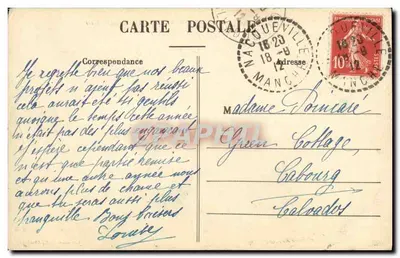 CARTE POSTALE
Correspondance
Adresse
NACQUEVILLE
18 20
18 - 8
12
MANCHE
10
Je regrette bien que nos beaux
projets n'aient pas réussi
cela aurait été si gentil
quoique le temps cette année
n'était pas des plus
J'espère cependant que ce
n'est que partie remise et
qu'une autre année nous
aurons plus de chance et
que tu seras aussi plus
tranquille Bons baisers
M
Madame Poincaré
Green Cottage
Cabourg
Calvados